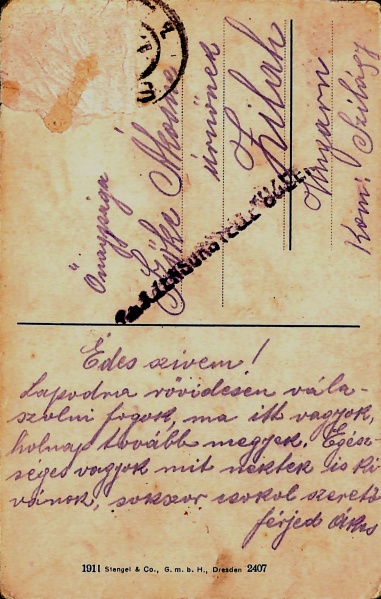 Őnagysága
Őke Ákosné
úrnőnek
Zilah
Ungarn
Kom: Szilágy
ZENSURSTELLE
Édes szivem!
Lapodra rövidesen vála-
szolni fogok, ma itt vagyok,
holnap tovább megyek. Egész-
séges vagyok mit nektek is ki
vánok, sokszor csokol szerető
férjed Ákos
1911 Stengel & Co., G. m. b. H., Dresden 2407